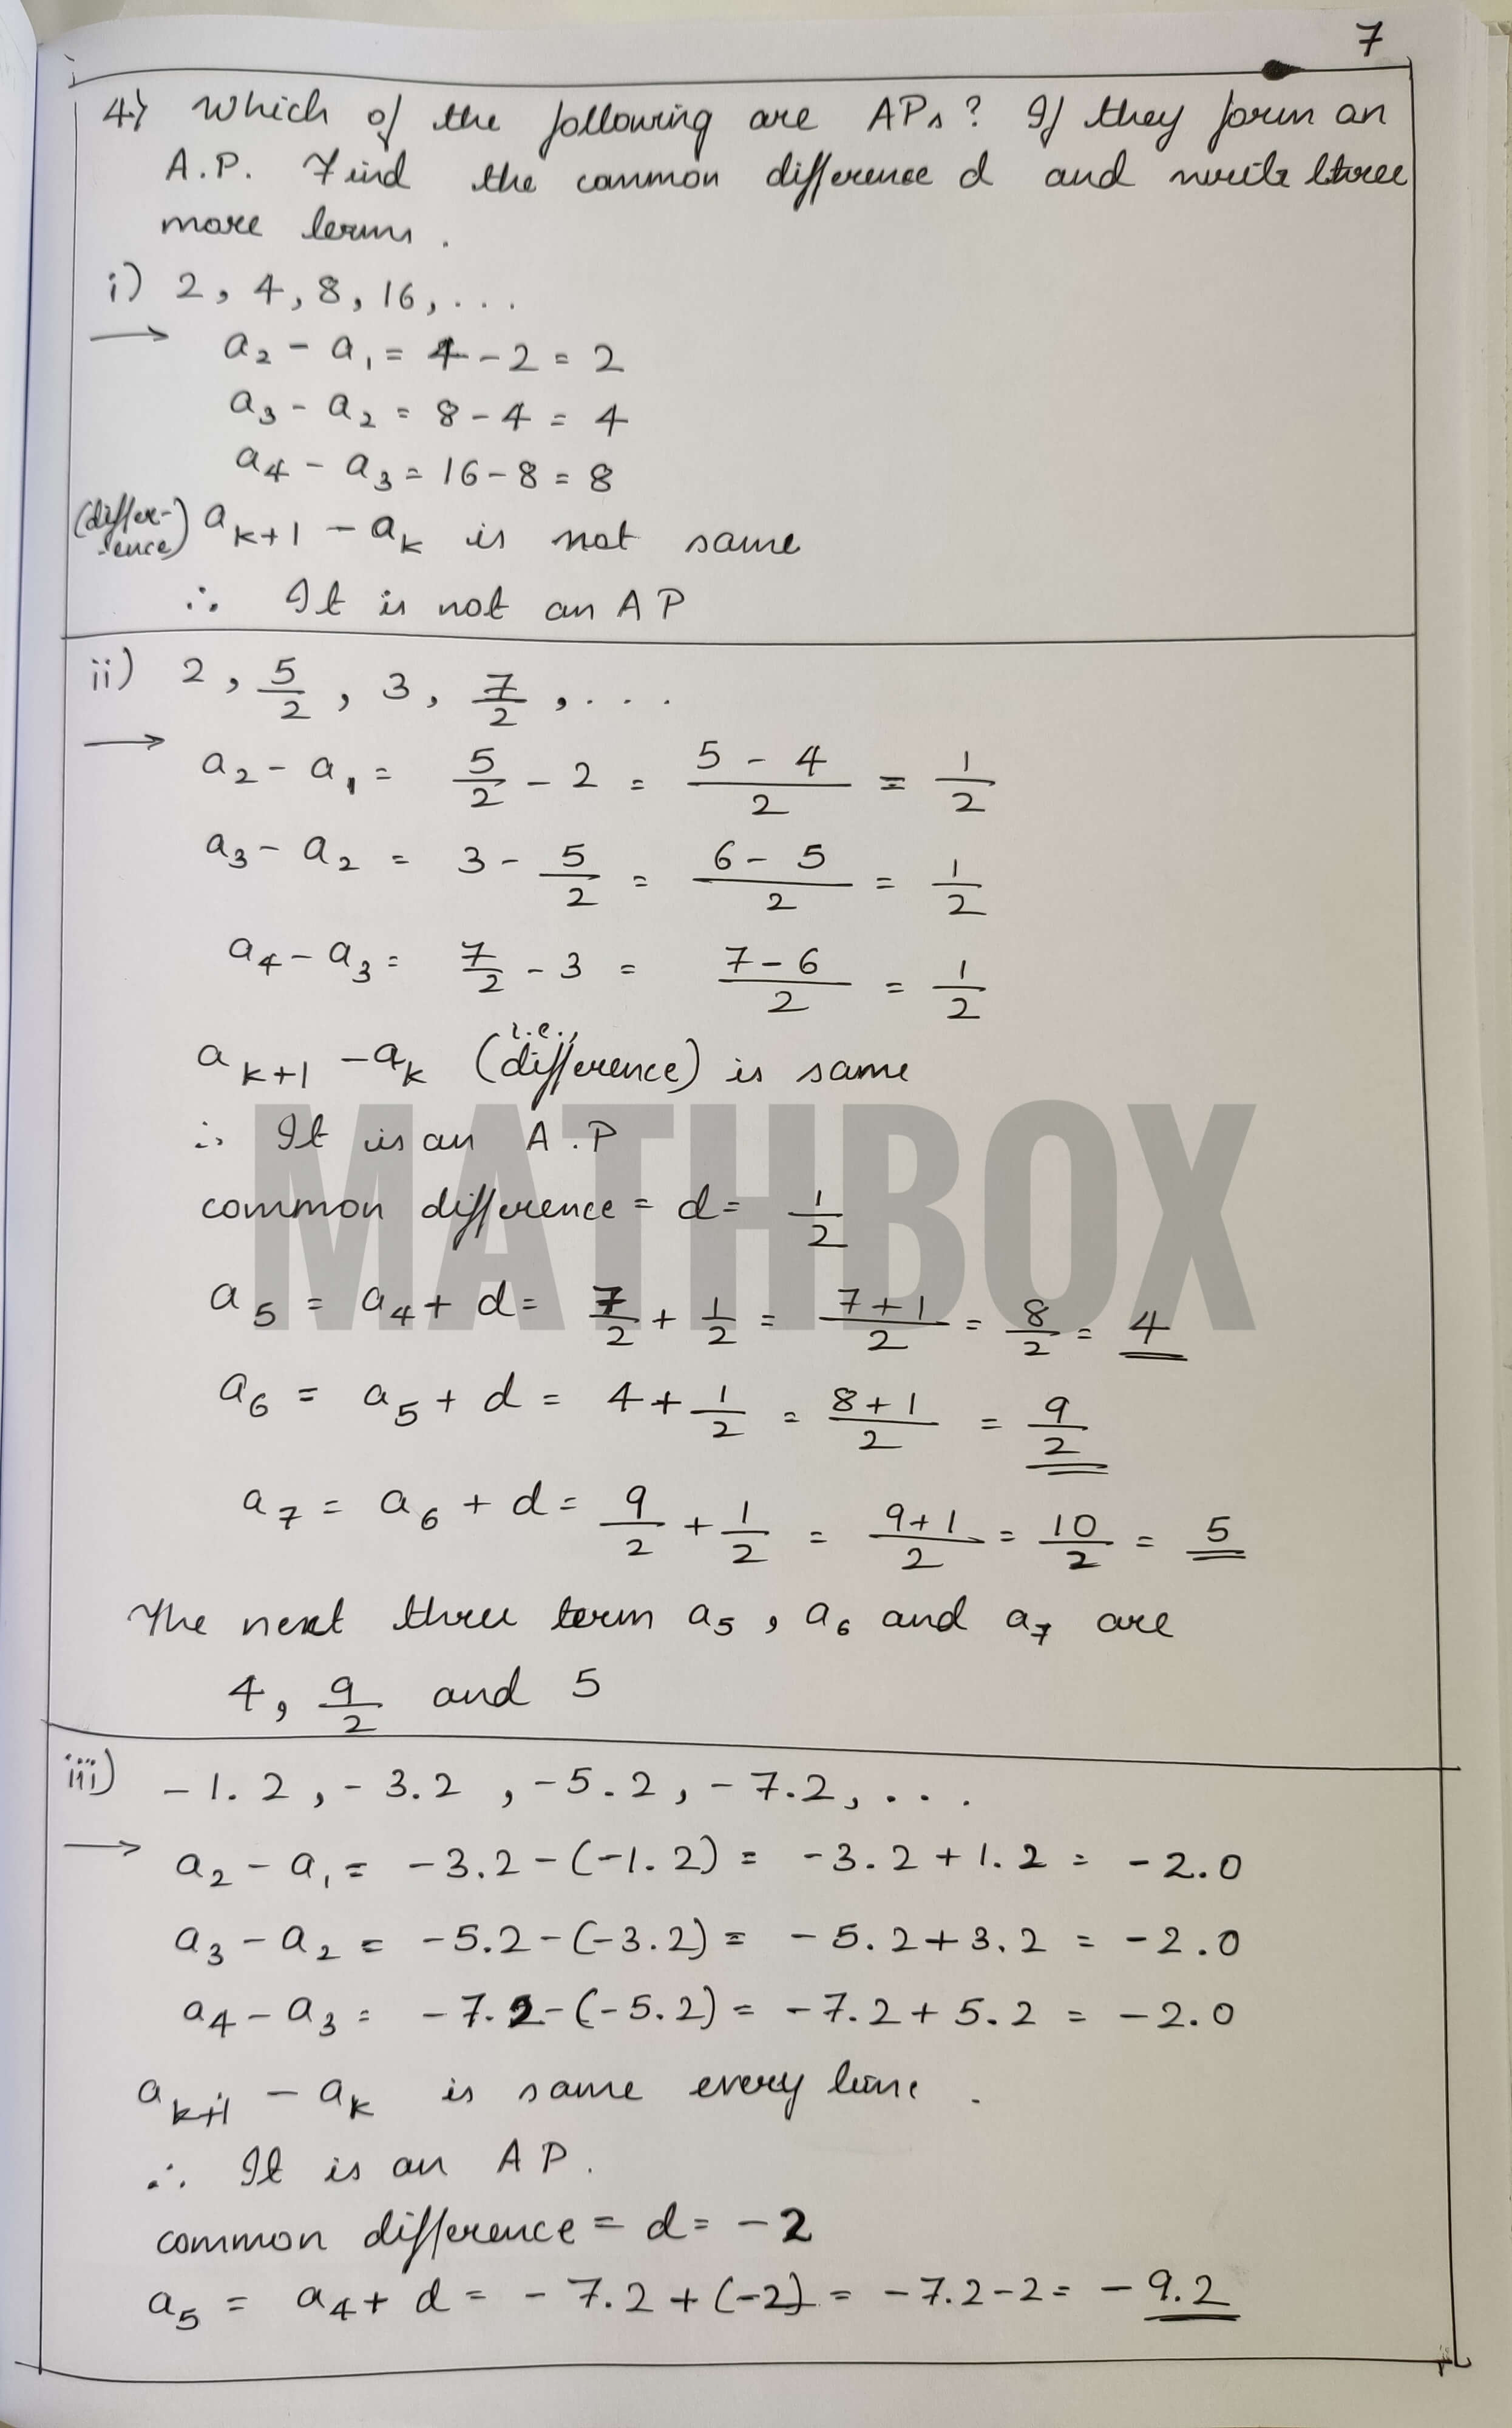 7
4) Which of the following are APs? If they form an
A.P. Find the common difference d and write three
more terms.
i) 2, 4, 8, 16, ...
→ a₂ - a₁ = 4 - 2 = 2
a₃ - a₂ = 8 - 4 = 4
a₄ - a₃ = 16 - 8 = 8
(differ-ence) aₖ₊₁ - aₖ is not same
∴ It is not an AP
ii) 2, 5/2, 3, 7/2, ...
→ a₂ - a₁ = 5/2 - 2 = (5 - 4)/2 = 1/2
a₃ - a₂ = 3 - 5/2 = (6 - 5)/2 = 1/2
a₄ - a₃ = 7/2 - 3 = (7 - 6)/2 = 1/2
aₖ₊₁ - aₖ (i.e., difference) is same
∴ It is an A.P
common difference = d = 1/2
a₅ = a₄ + d = 7/2 + 1/2 = (7 + 1)/2 = 8/2 = 4
a₆ = a₅ + d = 4 + 1/2 = (8 + 1)/2 = 9/2
a₇ = a₆ + d = 9/2 + 1/2 = (9 + 1)/2 = 10/2 = 5
The next three term a₅, a₆ and a₇ are
4, 9/2 and 5
iii) -1.2, -3.2, -5.2, -7.2, ...
→ a₂ - a₁ = -3.2 - (-1.2) = -3.2 + 1.2 = -2.0
a₃ - a₂ = -5.2 - (-3.2) = -5.2 + 3.2 = -2.0
a₄ - a₃ = -7.2 - (-5.2) = -7.2 + 5.2 = -2.0
aₖ₊₁ - aₖ is same every time.
∴ It is an AP.
common difference = d = -2
a₅ = a₄ + d = -7.2 + (-2) = -7.2 - 2 = -9.2
MATHBOX